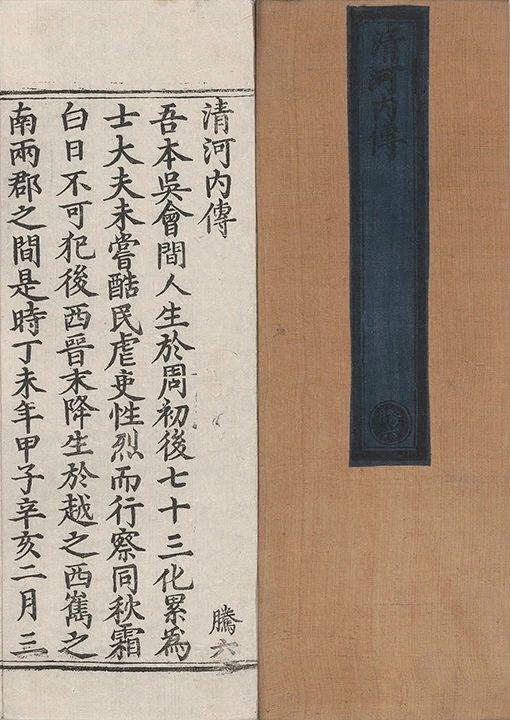 清河內傳
清河內傳
騰六
吾本吳會間人生於周初後七十三化累爲
士大夫未嘗酷民虐吏性烈而行察同秋霜
白日不可犯後西晉末降生於越之西嶲之
南兩郡之間是時丁未年甲子辛亥二月三